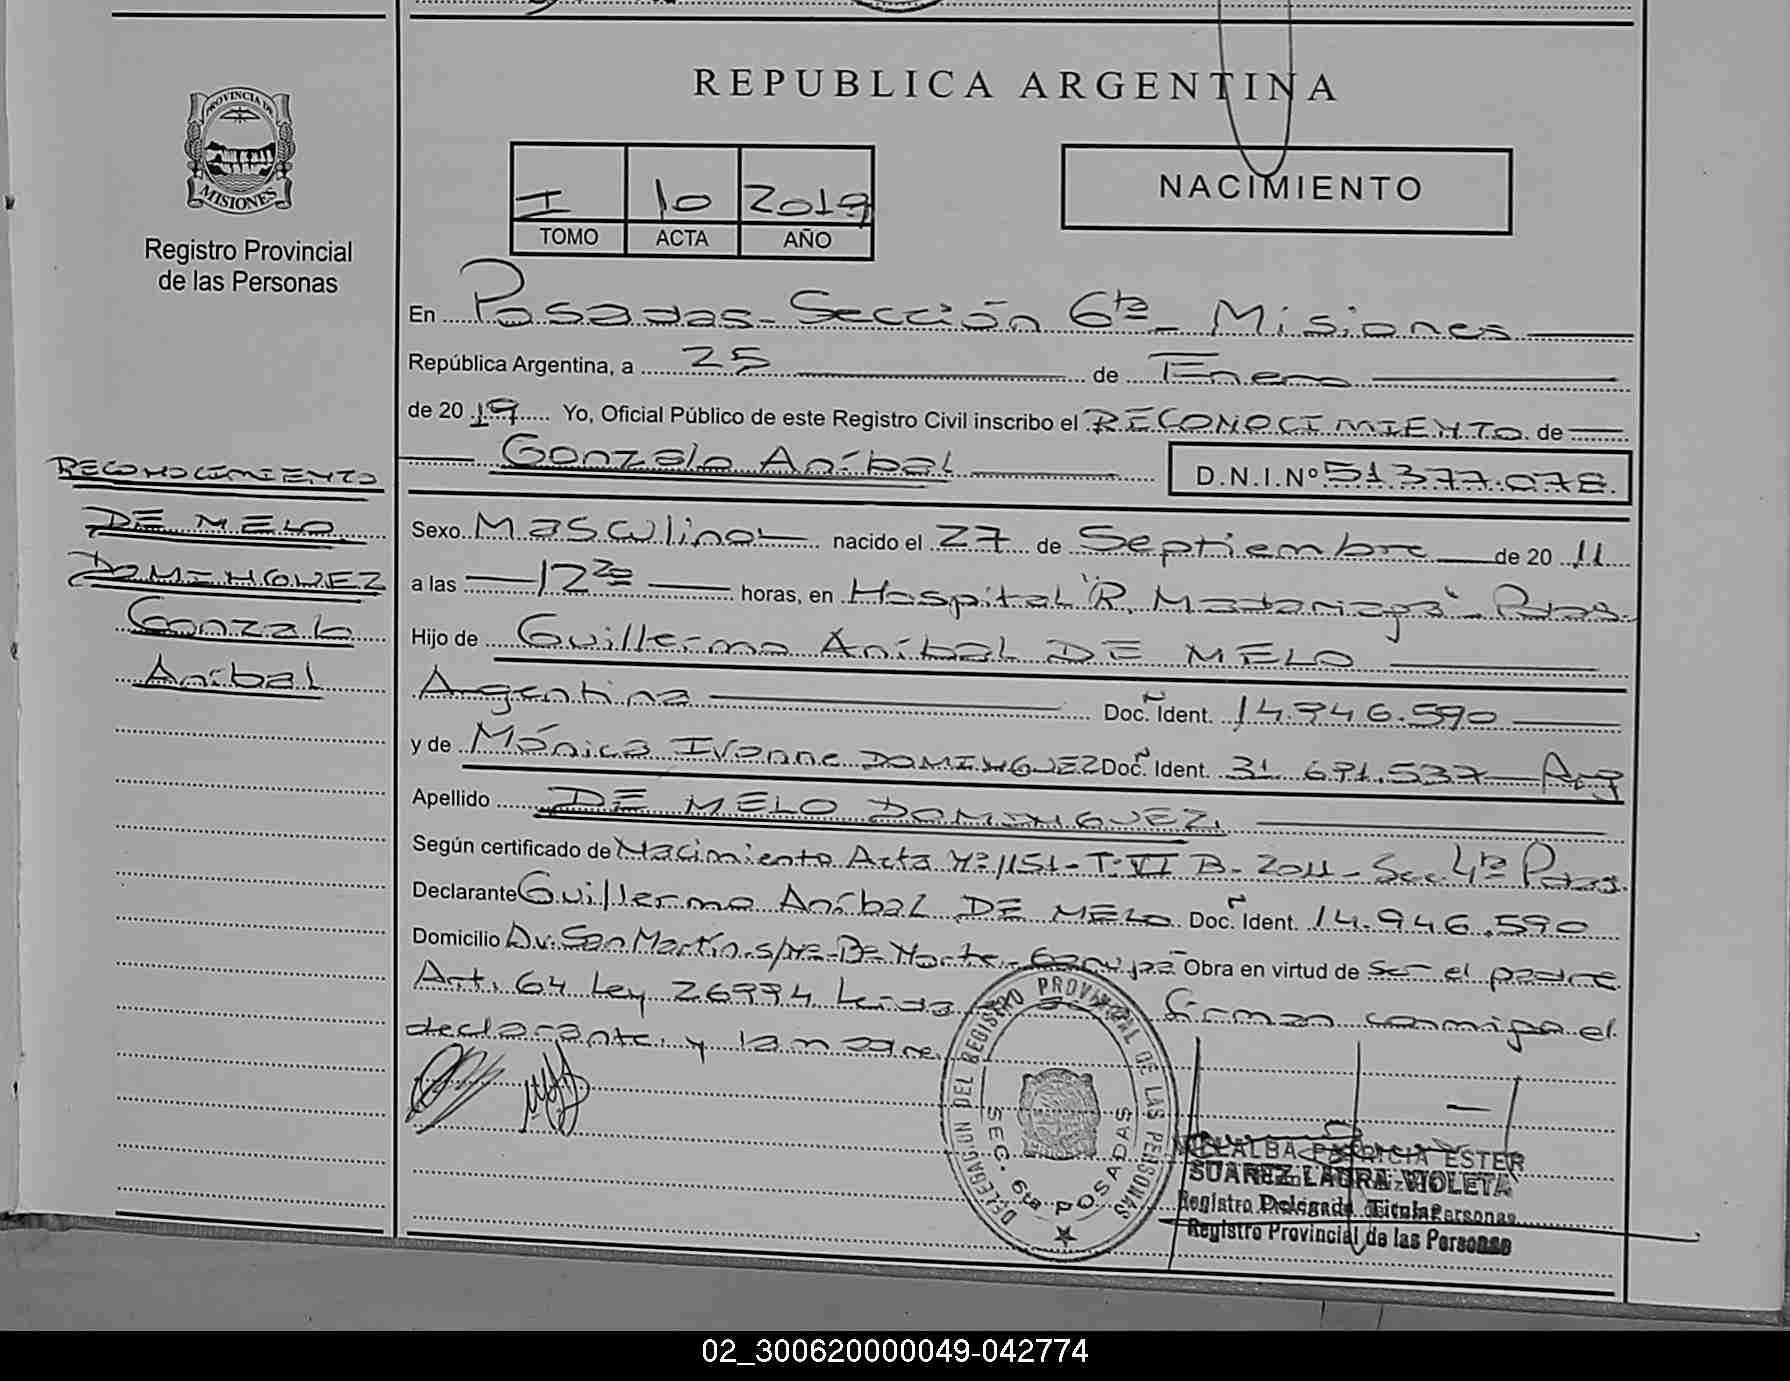 REPUBLICA ARGENTINA
PROVINCIA DE
MISIONES
Registro Provincial
de las Personas
I 10 2019
TOMO ACTA AÑO
NACIMIENTO
En Posadas - Sección 6ta - Misiones
República Argentina, a 25 de Enero
de 2019 Yo, Oficial Público de este Registro Civil inscribo el RECONOCIMIENTO de
Gonzalo Aníbal D.N.I.Nº 51.377.078.
RECONOCIMIENTO
DE MELO
DOMINGUEZ
Gonzalo
Aníbal
Sexo Masculino nacido el 27 de Septiembre de 2011
a las 12 horas, en Hospital "R. Madariaga" - Pdas.
Hijo de Guillermo Aníbal DE MELO
Argentina Doc. Ident. 14.946.590
y de Mónica Ivonne DOMINGUEZ Doc. Ident. 31.691.537 - Arg
Apellido DE MELO DOMINGUEZ.
Según certificado de Nacimiento Acta Nº 1151 - T: VI B - 2011 - Sec 4ta Pdas.
Declarante Guillermo Aníbal DE MELO Doc. Ident. 14.946.590
Domicilio Av. San Martín s/nº - Bº Norte - Garupá Obra en virtud de ser el padre
Art. 64 Ley 26994 Leída Firman conmigo el
declarante y la madre
DELEGACION DEL REGISTRO PROVINCIAL DE LAS PERSONAS
SEC. 6ta POSADAS
VILLALBA PATRICIA ESTER
SUAREZ LAURA VIOLETA
Registro Provincial de las Personas
02_300620000049-042774